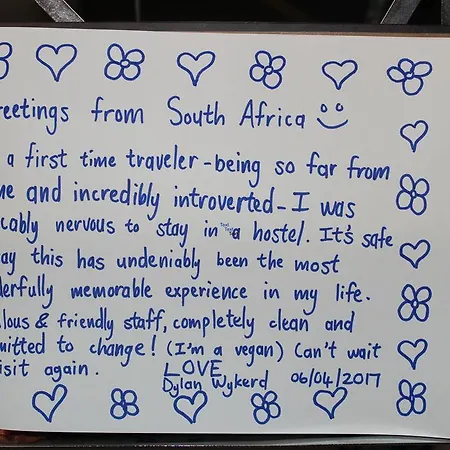 reetings from South Africa
a first time traveler - being so far from
me and incredibly introverted - I was
cably nervous to stay in a hostel. It's safe
ay this has undeniably been the most
derfully memorable experience in my life.
lous & friendly staff, completely clean and
mitted to change! (I'm a vegan) Can't wait
isit again. LOVE,
Dylan Wykerd 06/04/2017